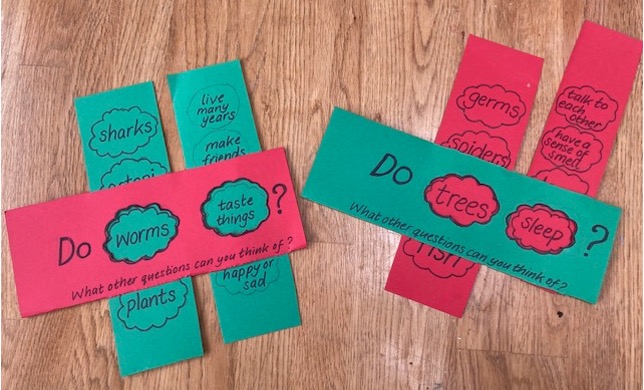 sharks
live
many
years
make
friends
Do worms taste
things ?
What other questions can you think of?
plants
happy or
sad
germs
spiders
talk to
each
other
have a
sense of
smell
Do trees sleep ?
What other questions can you think of?
fish